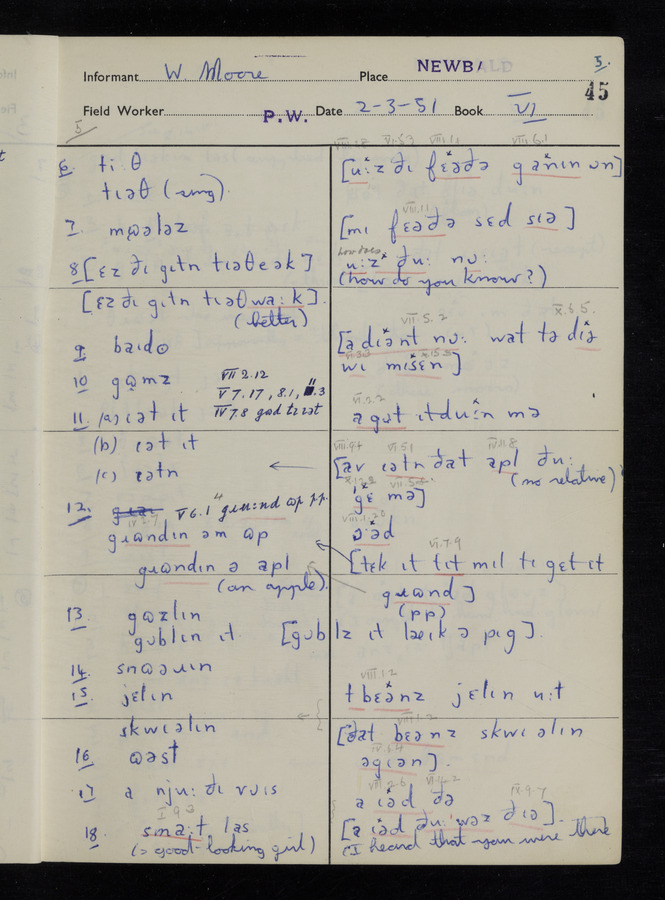 Informant W. Moore Place NEWBALD
Field Worker P.W. Date 2-3-51 Book VI
5.
45
5
6. ti:θ
tɪəθ (sing).
7. mɷələz
8 [ɛz ðɪ gɪtn tɪəθeək]
[ɛz ðɪ gɪtn tɪəθwa:k].
(better)
9 baɪdʊ
10 gɷmz VII 2.12
V 7.17, 8.1,
11. (a) ɪət ɪt IV 7.8
(b) ɪət ɪt
(c) ɪətn
12. V 6.1
gɹɷndɪn əm ɷp
gɹɷndɪn ə apl
(an apple).
13. gɷzlɪn
gʊblɪn ɪt. [gʊblz ɪt laɪk ə pɪg].
14.
15. jɛlɪn
skwɪəlɪn
16 ɷəst
17 a nju: ðɪ vɔɪs
I 9 2
18. sma:t las
(= good-looking girl)
VI 5.3 VIII.1.1 VIII.6.1
[u:z ðɪ fɛəðə ganɪn ɔn]
VIII.1.1
[mɪ fɛəðə sɛd sɪə]
how does
u:z ðu: nɔ:
(how do you know?)
VII.5.2 X.6.5.
[a dɪənt nɔ: wat tə dɪə
wɪ mɪsɛn]
VI.2.2
a gɷt ɪtdu:n mə
VI.5.1 IV.11.8
[av ɪətn ðat apl ðu:
(no relative)
gɛ mə]
VIII.1.20
əəd
VI.7.9
[tɛk ɪt tɪt mɪl tɪ gɛt ɪt
gɹɷnd]
(pp)
VIII.1.2
tbɛənz jɛlɪn u:t
VIII.1.2
[ðat bɛənz skwɪəlɪn
əgɪən].
VIII.2.6 VI.4.2
a ɪəd ðə IX.9.7
[a ɪəd ðu: wəz ðɪə].
(I heard that you were there